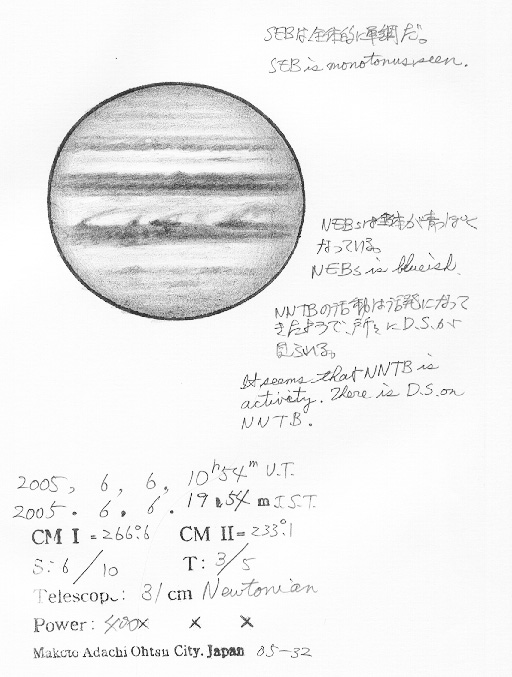 SEBは全体的に単調だ。
SEB is monotonus seen.
NEBsは全体が青っぽく
なっている。
NEBs is blueish.
NNTBの活動は活発になって
きたようで、所々にD.S.が
見られる。
It seems that NNTB is
activity. There is D.S. on
NNTB.
2005, 6, 6, 10h54m U.T.
2005. 6. 6. 19h54m J.S.T.
CM I = 266°.6 CM II = 233°.1
S: 6/10 T: 3/5
Telescope: 31 cm Newtonian
Power: 400× × ×
Makoto Adachi Ohtsu City, Japan 05-32